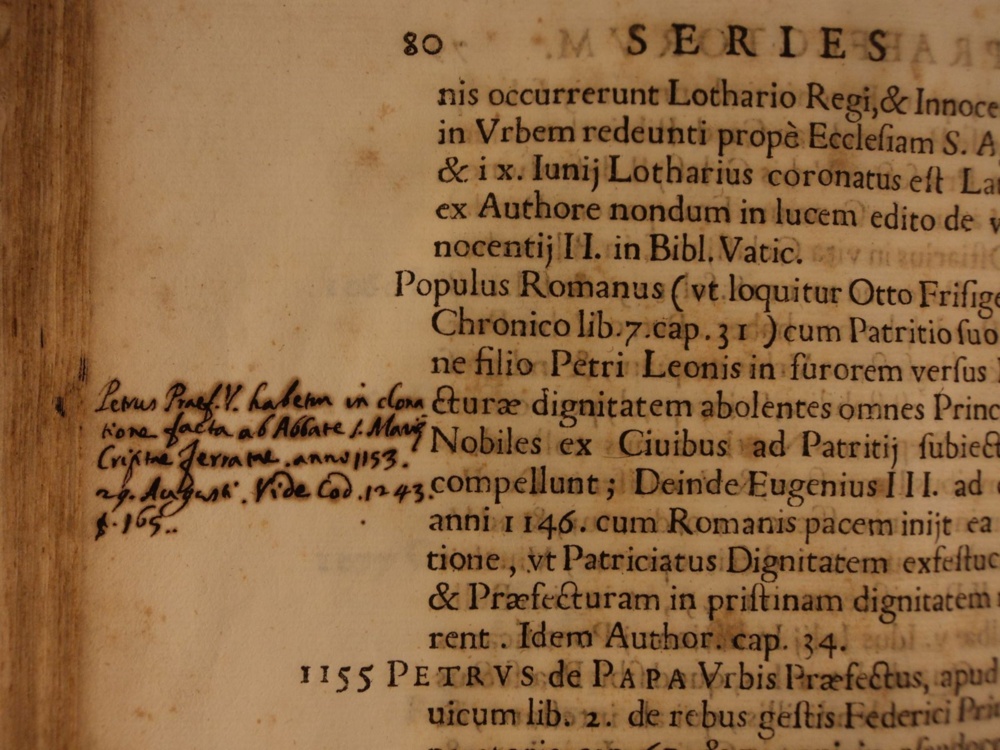 80 SERIES
nis occurrerunt Lothario Regi,& Innoce
in Vrbem redeunti propè Ecclesiam S. A
& ix. Iunij Lotharius coronatus est Lat
ex Authore nondum in lucem edito de v
nocentij II. in Bibl. Vatic.
Populus Romanus (vt loquitur Otto Frisige
Chronico lib.7.cap.31) cum Patritio suo
ne filio Petri Leonis in furorem versus
cturæ dignitatem abolentes omnes Princ
Nobiles ex Ciuibus ad Patritij subiect
compellunt; Deinde Eugenius III. ad
anni 1146. cum Romanis pacem inijt ea
tione, vt Patriciatus Dignitatem exfestuc
& Præfecturam in pristinam dignitatem
rent. Idem Author. cap. 34.
1155 PETRVS de PAPA Vrbis Præfectus, apud
uicum lib. 2. de rebus gestis Federici Pri
Petrus Præf. V. habetur in dona
tione facta ab Abbate S. Mariæ
Criptæ ferratæ. anno 1153.
29. Augusti. Vide Cod. 1243.
f. 165.